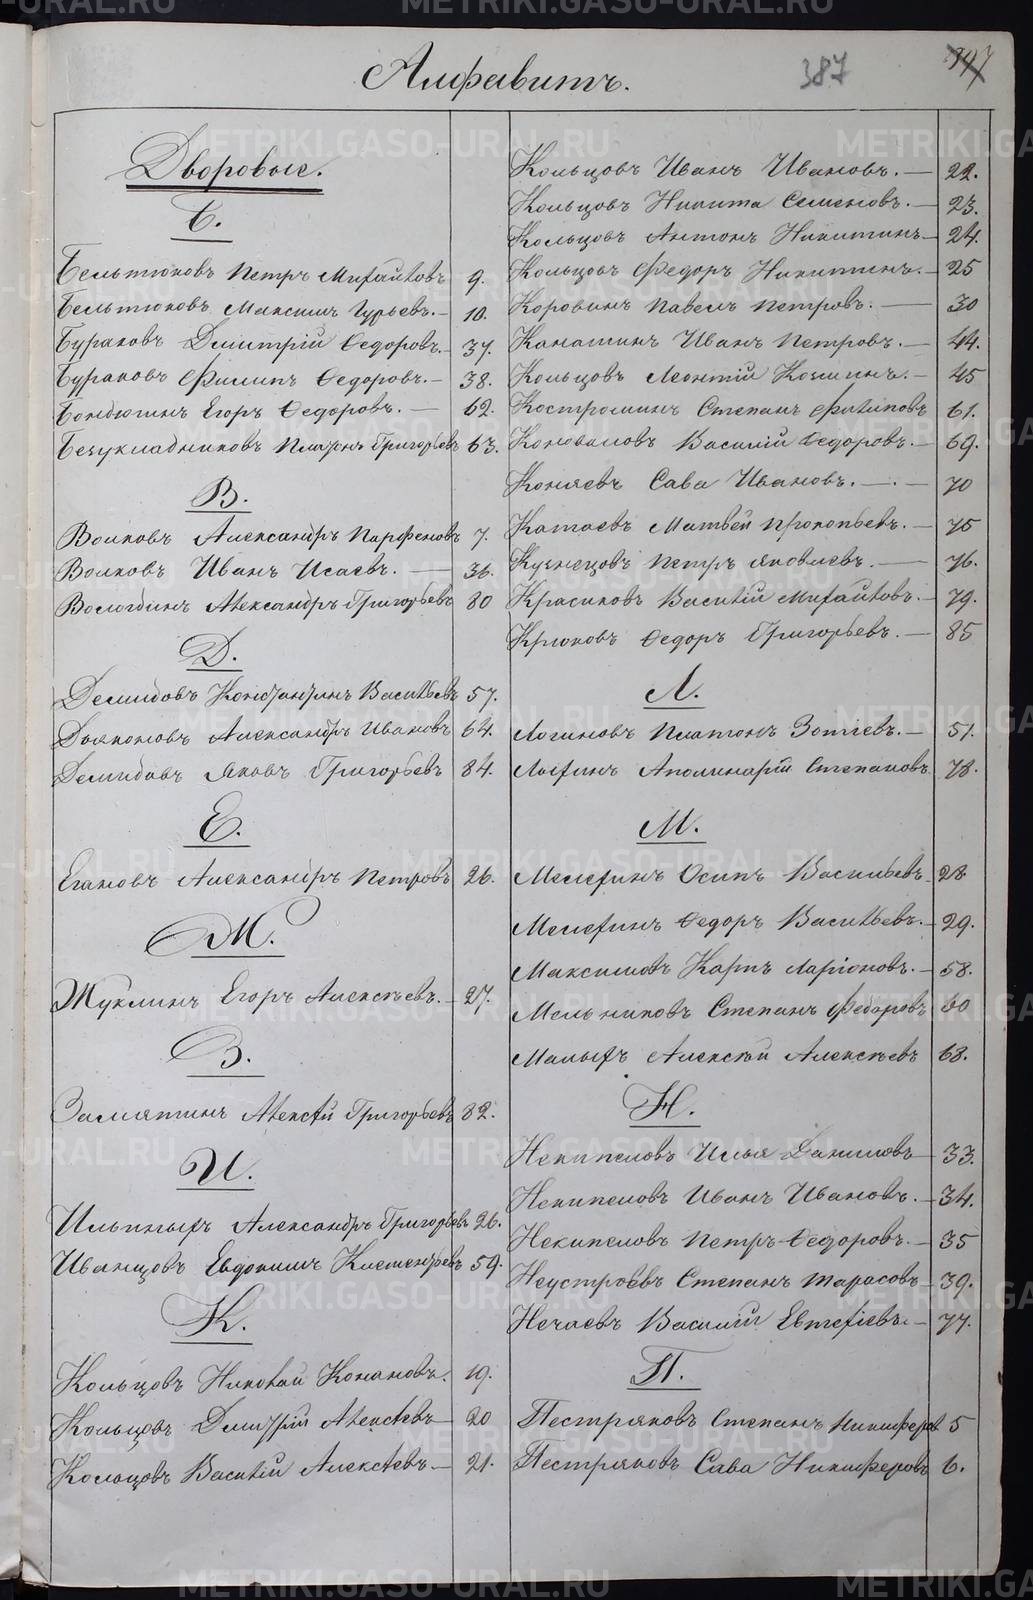 Алфавитъ.
387
Дворовые.
Б.
Бельтюковъ Петръ Михайловъ 9.
Бельтюковъ Максимъ Гурьевъ. — 10.
Бураковъ Дмитрій Ѳедоровъ. — 37.
Бураковъ Филипъ Ѳедоровъ. — 38.
Бондюгинъ Егоръ Ѳедоровъ. — 62.
Безукладниковъ Платонъ Григорьевъ 63.
В.
Волковъ Александръ Парфеновъ 7.
Волковъ Иванъ Исаевъ. — 36.
Вологдинъ Александръ Григорьевъ 80
Д.
Демидовъ Константинъ Васильевъ 57.
Дьяконовъ Александръ Ивановъ 64.
Демидовъ Яковъ Григорьевъ 84.
Е.
Егановъ Александръ Петровъ 26.
Ж.
Жуклинъ Егоръ Алексѣевъ. — 27.
З.
Замятинъ Алексѣй Григорьевъ 82.
И.
Ильиныхъ Александръ Григорьевъ 26.
Иванцовъ Евдокимъ Климентьевъ 59.
К.
Кольцовъ Николай Конановъ. 19.
Кольцовъ Дмитрій Алексѣевъ — 20
Кольцовъ Василій Алексѣевъ — 21.
Кольцовъ Иванъ Ивановъ. — 22.
Кольцовъ Никита Семеновъ. — 23.
Кольцовъ Антонъ Никитинъ — 24.
Кольцовъ Федоръ Никитинъ. — 25
Коровинъ Павелъ Петровъ. — 30
Канатинъ Иванъ Петровъ. — 44.
Кольцовъ Леонтій Козминъ. — 45
Костроминъ Степанъ Филиповъ 61.
Коноваловъ Василій Ѳедоровъ. — 69.
Коняевъ Сава Ивановъ. — . — 70
Катаевъ Матвей Прокопьевъ. — 75
Кузнецовъ Петръ Яковлевъ. — 76.
Красиковъ Василій Михайловъ. — 79.
Крюковъ Ѳедоръ Григорьевъ. — 85
Л.
Логиновъ Платонъ Зотіевъ. — 51.
Лыхинъ Аполинарій Степановъ 78.
М.
Мелехинъ Осипъ Васильевъ. 28
Мелехинъ Ѳедоръ Васильевъ. — 29.
Максимовъ Карпъ Ларіоновъ. — 58.
Мельниковъ Степанъ Федоровъ 60
Малыхъ Алексѣй Алексѣевъ 68.
Н.
Некипеловъ Илья Даниловъ — 33.
Некипеловъ Иванъ Ивановъ. — 34.
Некипеловъ Петръ Ѳедоровъ. — 35
Неустроевъ Степанъ Тарасовъ — 39.
Нечаевъ Василій Евтехіевъ. — 77.
П.
Пестряковъ Степанъ Никифоровъ 5
Пестряковъ Сава Никифоровъ 6.
METRIKI.GASO-URAL.RU